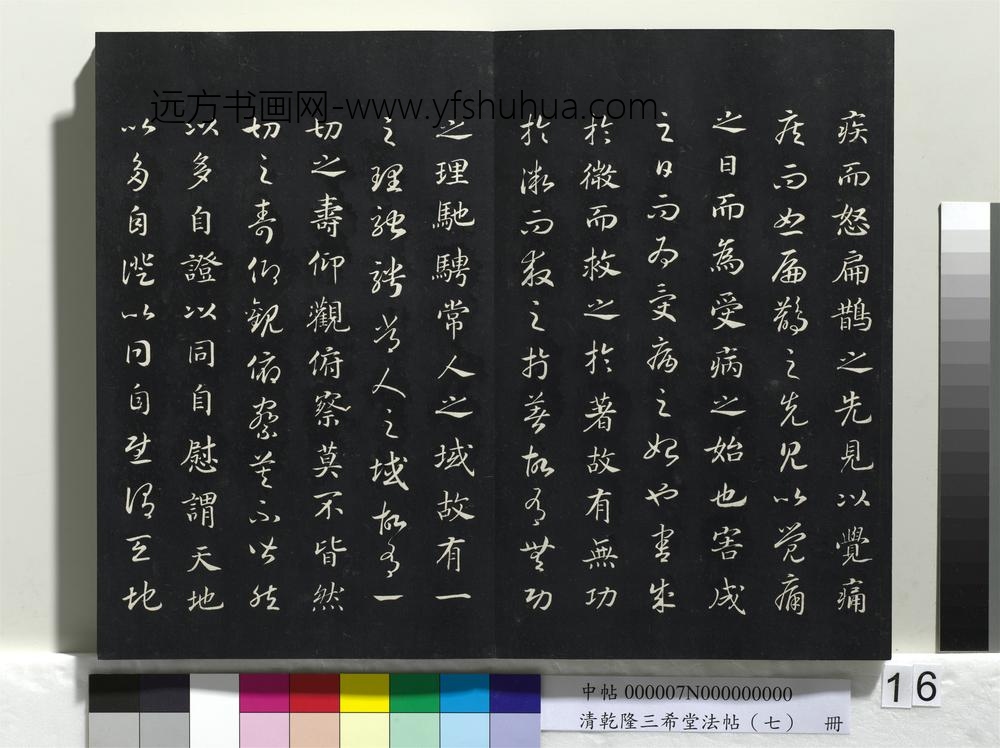 远方书画网-www.yfshuhua.com
疾而怒扁鵲之先見以覺痛
疾而怒扁鵲之先見以覺痛
之日而為受病之始也害成
之日而為受病之始也害成
於微而救之於著故有無功
於微而救之於著故有無功
之理馳騁常人之域故有一
之理馳騁常人之域故有一
切之壽仰觀俯察莫不皆然
切之壽仰觀俯察莫不皆然
以多自證以同自慰謂天地
以多自證以同自慰謂天地
中帖 000007N000000000
清乾隆三希堂法帖（七） 冊
16